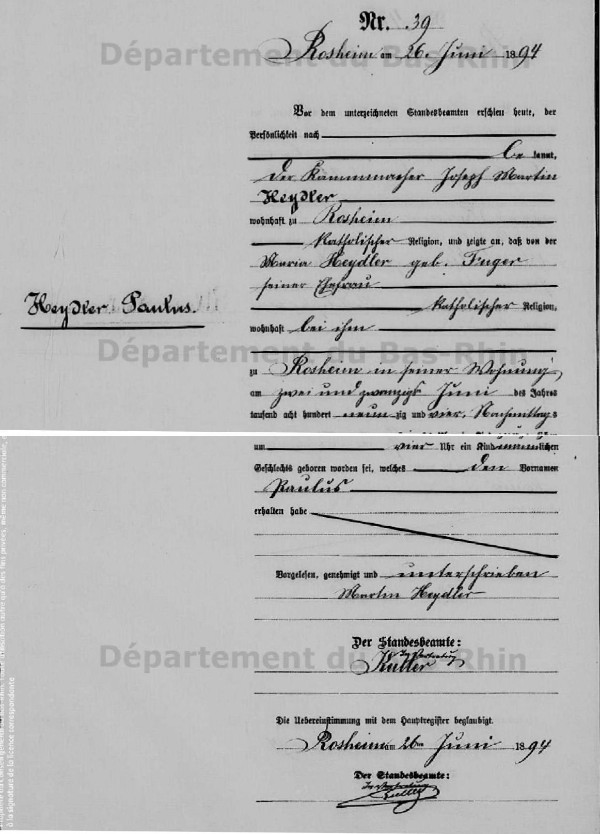 Nr. 39
Rosheim am 26 Juni 1894
Vor dem unterzeichneten Standesbeamten erschien heute, der
Persönlichkeit nach
be kannt,
der Kammmacher Joseph Martin
Heydler
wohnhaft zu Rosheim
katholischer Religion, und zeigte an, daß von der
Maria Heydler geb. Fuger
seiner Ehefrau
katholischer Religion,
Heydler Paulus.
wohnhaft bei ihm
zu Rosheim in seiner Wohnung
am zwei und zwanzigst Juni des Jahres
tausend acht hundert neun zig und vier, Nachmittags
um vier Uhr ein Kind männlichen
Geschlechts geboren worden sei, welches den Vornamen
Paulus
erhalten habe
Vorgelesen, genehmigt und unterschrieben
Martin Heydler
Der Standesbeamte:
In Vertretung
Die Uebereinstimmung mit dem Hauptregister beglaubigt.
Rosheim am 26 Juni 1894
Der Standesbeamte:
In Vertretung
Département du Bas-Rhin
Département du Bas-Rhin
Département du Bas-Rhin
à la signature de la licence correspondante